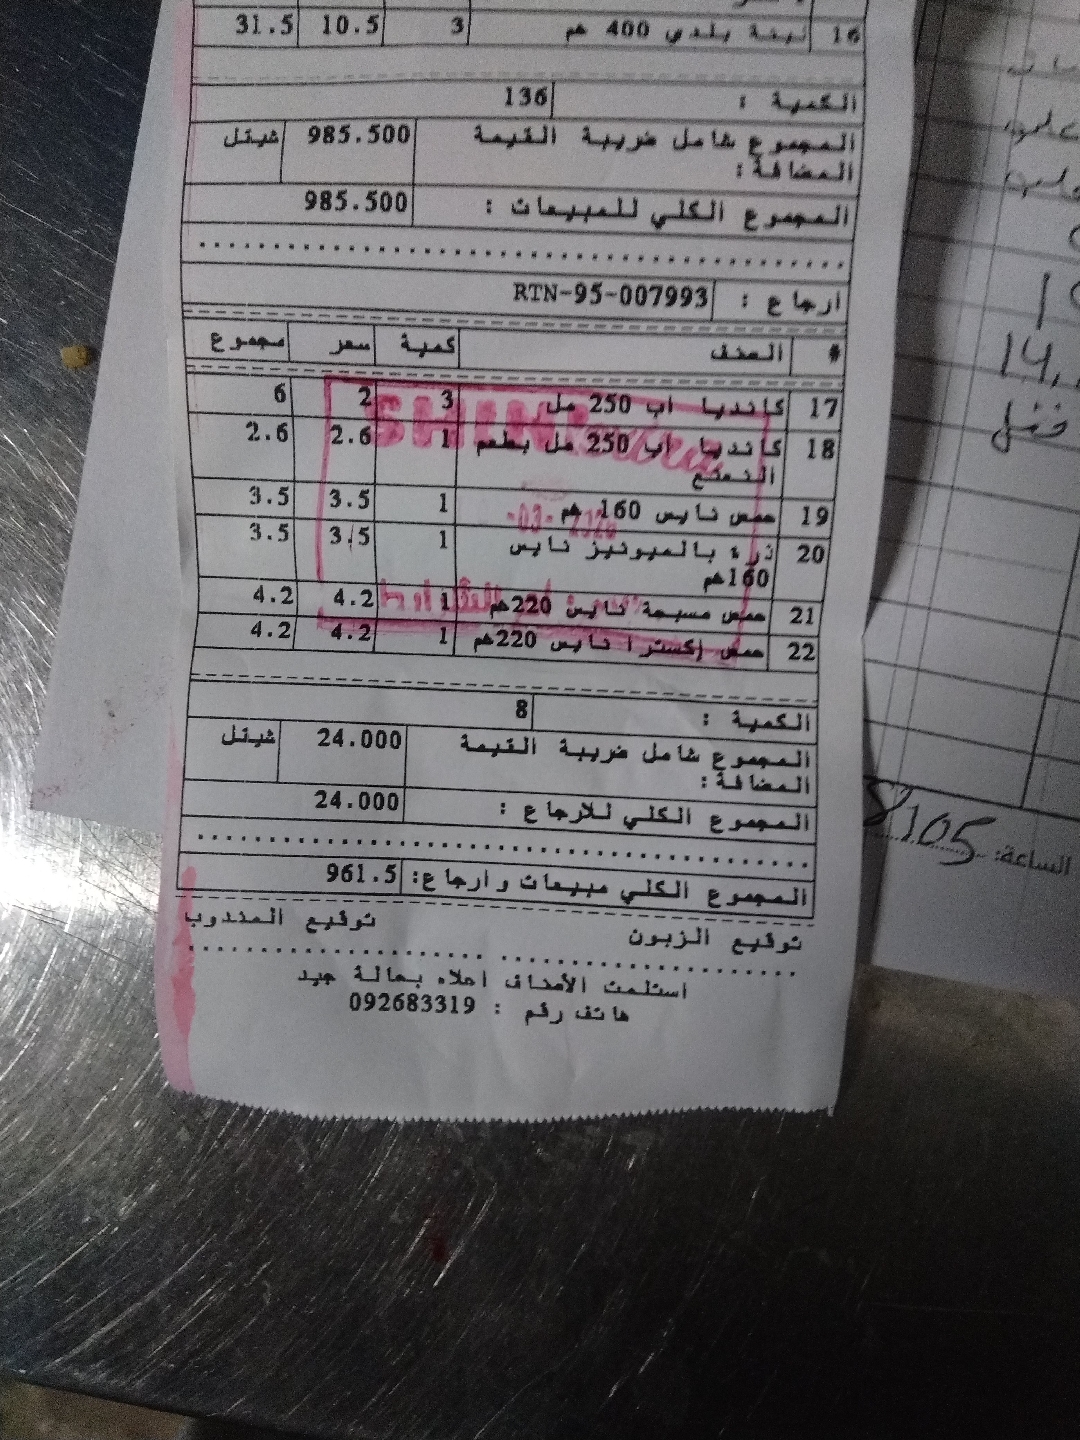 16 لبنة بلدي 400 غم 3 10.5 31.5
الكمية : 136
المجموع شامل ضريبة القيمة 985.500 شيقل
المضافة:
المجموع الكلي للمبيعات : 985.500
ارجاع : RTN-95-007993
# الصنف كمية سعر مجموع
17 كانديا اب 250 مل 3 2 6
18 كانديا اب 250 مل بطعم 1 2.6 2.6
النعنع
19 حمص نايس 160 غم 1 3.5 3.5
20 ذرة بالميونيز نايس 1 3.5 3.5
160غم
21 حمص مسبحة نايس 220غم 1 4.2 4.2
22 حمص إكسترا نايس 220غم 1 4.2 4.2
الكمية : 8
المجموع شامل ضريبة القيمة 24.000 شيقل
المضافة:
المجموع الكلي للارجاع : 24.000
المجموع الكلي مبيعات وارجاع: 961.5
توقيع الزبون توقيع المندوب
استلمت الأصناف اعلاه بحالة جيد
هاتف رقم : 092683319
الساعة: 8105